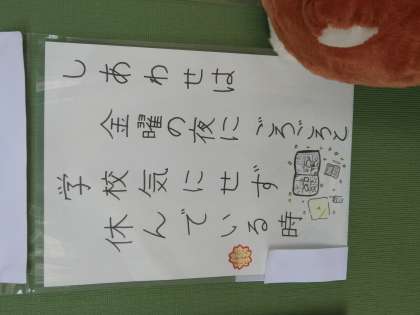 しあわせは
金曜の夜にごろごろと
学校気にせず
休んでいる時